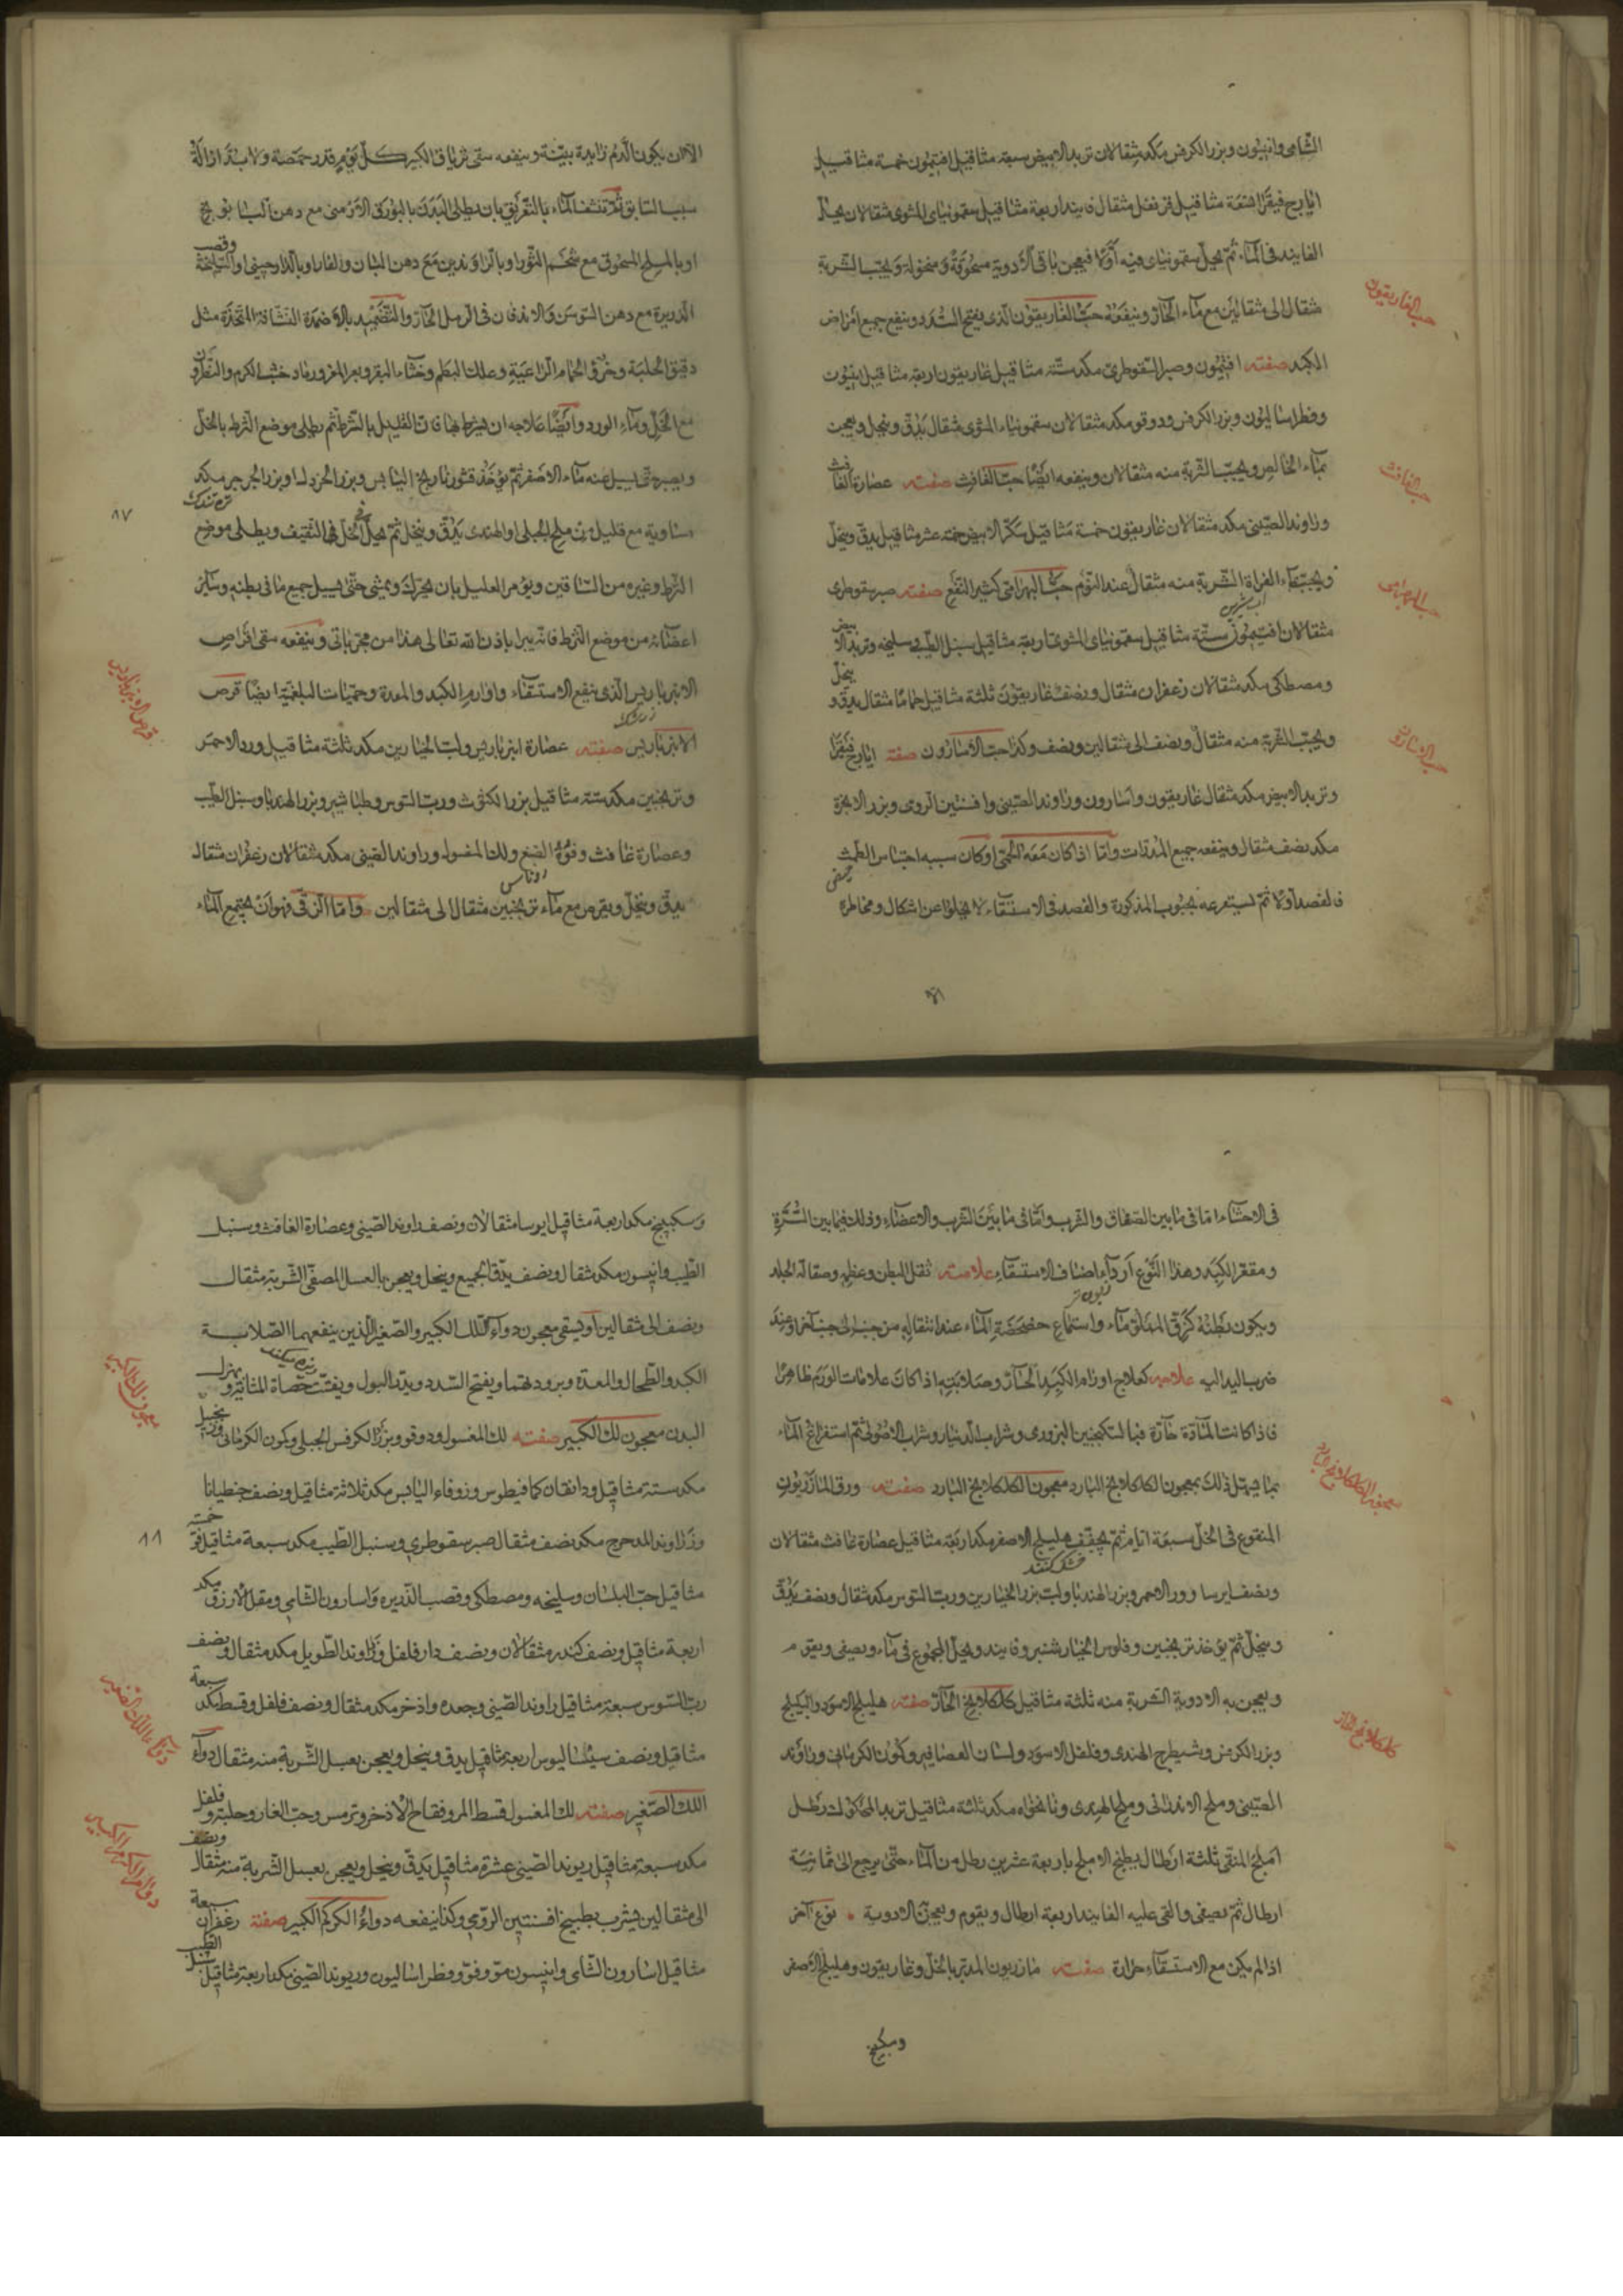 الشامى وانيسون وبزر الكرفس مكد مثقالان تربد الابيض سبعة مثاقيل افتيمون خمسة مثاقيل
ايارج فيقرا تسعة مثاقيل قرنفل مثقال فانيد اربعة مثاقيل سقمونياى المشوى مثقالان يحل
الفانيد فى الماء ثم يحل سقمونياى فيه اولا فيعجن باقى الادوية مسحوقة ومنخولة ويحبب الشربة
مثقال الى مثقالين مع ماء الحار وينفعه حب الغاريقون الذى يفتح السدد وينفع جميع امراض
حب الغاريقون
الكبد صفته افتيمون وصبر السقوطرى مكد ستة مثاقيل غاريقون اربعة مثاقيل انيسون
وفطراساليون وبزر الكرفس ودوقو مكد مثقالان سقمونياء المشوى مثقال يدق وينخل ويعجن
بماء الخالص ويحبب الشربة منه مثقالان وينفعه ايضا حب الغافث صفته عصارة الغافث
حب الغافث
وراوند الصينى مكد مثقالان غاريقون خمسة مثاقيل سكر الابيض خمسة عشر مثاقيل يدق وينخل
ويحبب بماء الفراة الشربة منه مثقال عند النوم حب البهرامى كثير النفع صفته صبر سقوطرى
حب البهرامى
مثقالان افتيمون ستة مثاقيل سقمونياى المشوى اربعة مثاقيل سنبل الطيب سليخه وتربد الابيض
ومصطكى مكد مثقالان زعفران مثقال ونصف غاريقون ثلثة مثاقيل حاما مثقال يدق وينخل
ويحبب الشربة منه مثقال ونصف الى مثقالين ونصف وكذا حب الاسارون صفة ايارج فيقرا
حب الاسارون
وتربد الابيض مكد مثقال غاريقون واسارون وراوند الصينى وافسنتين الرومى وبزر الانجرة
مكد نصف مثقال وينفعه جميع المدرات واما اذا كان معه الحمى او كان سببه احتباس الطمث
فالفصد اولا ثم يستفرغه بحبوب المذكورة والفصد فى الاستسقاء لا يخلو عن اشكال ومخاطرة
الا ان يكون الدم زايدة بينة وينفعه سقى ترياق الكبير كل يوم قدر حمصة ولابد ازالة
سبب السابق ثم تنشف الماء بالتعريق بان يطلى البدن بالبورق الارمنى مع دهن البابونج
او بالملح المسحوق مع شحم الثور او بالراوندين مع دهن البان والغار او بالدارجينى او السليخة وقصب
الذريرة مع دهن السوسن والاندفان فى الرمل الحار والتضميد بالاضمدة النشافة المتخذة مثل
دقيق الحلبة وخرؤ الحمام الراعبية وعلك البطم وخثاء البقر وبعر المعز ورماد خشب الكرم والنطرون
مع الخل وماء الورد وايضا علاجه ان يشرط بالشرط ثم يطلى موضع الشرط بالخل
ويصبر حتى يسيل عنه ماء الاصفر ثم يؤخذ قشور نارنج اليابس وبزر الخردل او بزر الجرجير مكد
تره تندك
متساوية مع قليل من ملح الجبلى او الهندى يدق وينخل ثم يحل فى الخل الثقيف ويطلى موضع
٨٧
الشرط وغيره من الساقين ويؤمر العليل بان يتحرك ويمشى حتى يسيل جميع ما فى بطنه وساير
اعضائه من موضع الشرط فانه يبرا باذن الله تعالى هذا من مجرباتى وينفعه سقى اقراص
الانبرباريس الذى ينفع الاستسقاء واورام الكبد والمعدة وحميات البلغمية ايضا قرص
زرشك
الانبرباريس صفته عصارة انبرباريس ولب الخيارين مكد ثلثة مثاقيل ورد الاحمر
وترنجبين مكد ستة مثاقيل بزر الكثوث ورب السوس وطباشير وبزر الهندبا وسنبل الطيب
وعصارة غافث وفوة الصبغ ولك المغسول وراوند الصينى مكد مثقالان زعفران مثقال
روناس
يدق وينخل ويقرص مع ماء ترنجبين مثقال الى مثقالين واما الزقى فهو ان يجتمع الماء
فى الاحشاء اما فى ما بين الصفاق والثرب واما فى ما بين الثرب والاعضاء وذلك فيما بين السرة
ومقعر الكبد وهذا النوع اردأ اصناف الاستسقاء علامته ثقل البطن وعظمه وصقالة الجلد
ويكون بطنه كزق الملقى ماء واستماع خضخضة الماء عند انتقاله من جنب الى جنب آخر او عند
ضرب اليد اليه علاجه كعلاج اورام الكبد الحار وصلابته اذا كان علامات الورم ظاهرا
فاذا كانت المادة حارة فبالسكنجبين البزورى وشراب الدينار وشراب الاصول ثم استفراغ الماء
بما يسهل ذلك بمعجون الكلكلانج البارد معجون الكلكلانج البارد صفته ورق المازريون
معجون الكلكلانج البارد
المنقوع فى الخل سبعة ايام ثم يجفف هليلج الاصفر مكد اربعة مثاقيل عصارة غافث مثقالان
خشك كنند
ونصف ايرسا وورد الاحمر وبزر الهندبا ولب بزر الخيارين ورب السوس مكد مثقال ونصف يدق
وينخل ثم يؤخذ ترنجبين وفلوس الخيار شنبر وفانيد ويحل المجموع فى ماء ويصفى ويقوم
ويعجن به الادوية الشربة منه ثلثة مثاقيل كلكلانج الحار صفته هليلج الاسود والبليلج
كلكلانج الحار
وبزر الكرفس وشيطرج الهندى وفلفل الاسود ولسان العصافير وكمون الكرمانى وراوند
الصينى وملح الاندرانى وملح الهندى ونانخواه مكد ثلثة مثاقيل تربد المحكوك رطل
املج المنقى ثلثة ارطال يطبخ الاملج باربعة عشرين رطل من الماء حتى يرجع الى ثمانية
ارطال ثم يصفى والقى عليه الفانيد اربعة ارطال ويقوم ويعجن الادوية نوع آخر
اذا لم يكن مع الاستسقاء حرارة صفته مازريون المدبر بالخل وغاريقون وهليلج الاصفر
وسكبينج
وسكبينج مكد اربعة مثاقيل ايرسا مثقالان ونصف راوند الصينى وعصارة الغافث وسنبل
الطيب وانيسون مكد مثقال ونصف يدق الجميع وينخل ويعجن بالعسل المصفى الشربة مثقال
ونصف الى مثقالين او يسقى معجون دواء اللك الكبير والصغير الذين ينفعهما الصلابة
الكبد والطحال والمعدة وبرودتهما ويفتح السدد ويدر البول ويفتت حصاة المثانة ويهزل
البدن معجون لك الكبير صفته لك المغسول ودوقو وبزر الكرفس الجبلى وكمون الكرمانى وزنجبيل
معجون لك الكبير
مكد ستة مثاقيل ودانقان كمافيطوس وزوفاء اليابس مكد ثلاثة مثاقيل ونصف جنطيانا
وزراوند المدحرج مكد نصف مثقال صبر سقوطرى وسنبل الطيب مكد سبعة مثاقيل
٨٨
مثاقيل حب البلسان وسليخه ومصطكى وقصب الذريره واسارون الشامى ومقل الازرق مكد
اربعة مثاقيل ونصف كندر مثقالان ونصف دار فلفل وزراوند الطويل مكد مثقال ونصف
رب السوس سبعة مثاقيل راوند الصينى وجعده واذخر مكد مثقال ونصف فلفل وقسط مكد سبعة
مثاقيل ونصف سيساليوس اربعة مثاقيل يدق وينخل ويعجن بعسل الشربة منه مثقال دواء
دواء اللك الصغير
اللك الصغير صفته لك المغسول قسط المر وفقاح الاذخر وترمس وحب الغار وحلبة وفلفل
مكد سبعة مثاقيل ريوند الصينى عشرة مثاقيل يدق وينخل ويعجن بعسل الشربة منه مثقال ونصف
دواء الكركم الكبير
الى مثقالين يشرب بطبيخ افسنتين الرومى وكذا ينفعه دواء الكركم الكبير صفته زعفران سبعة
مثاقيل اسارون الشامى وانيسون مو وفوه وفطراساليون وريوند الصينى مكد اربعة مثاقيل سنبل الطيب